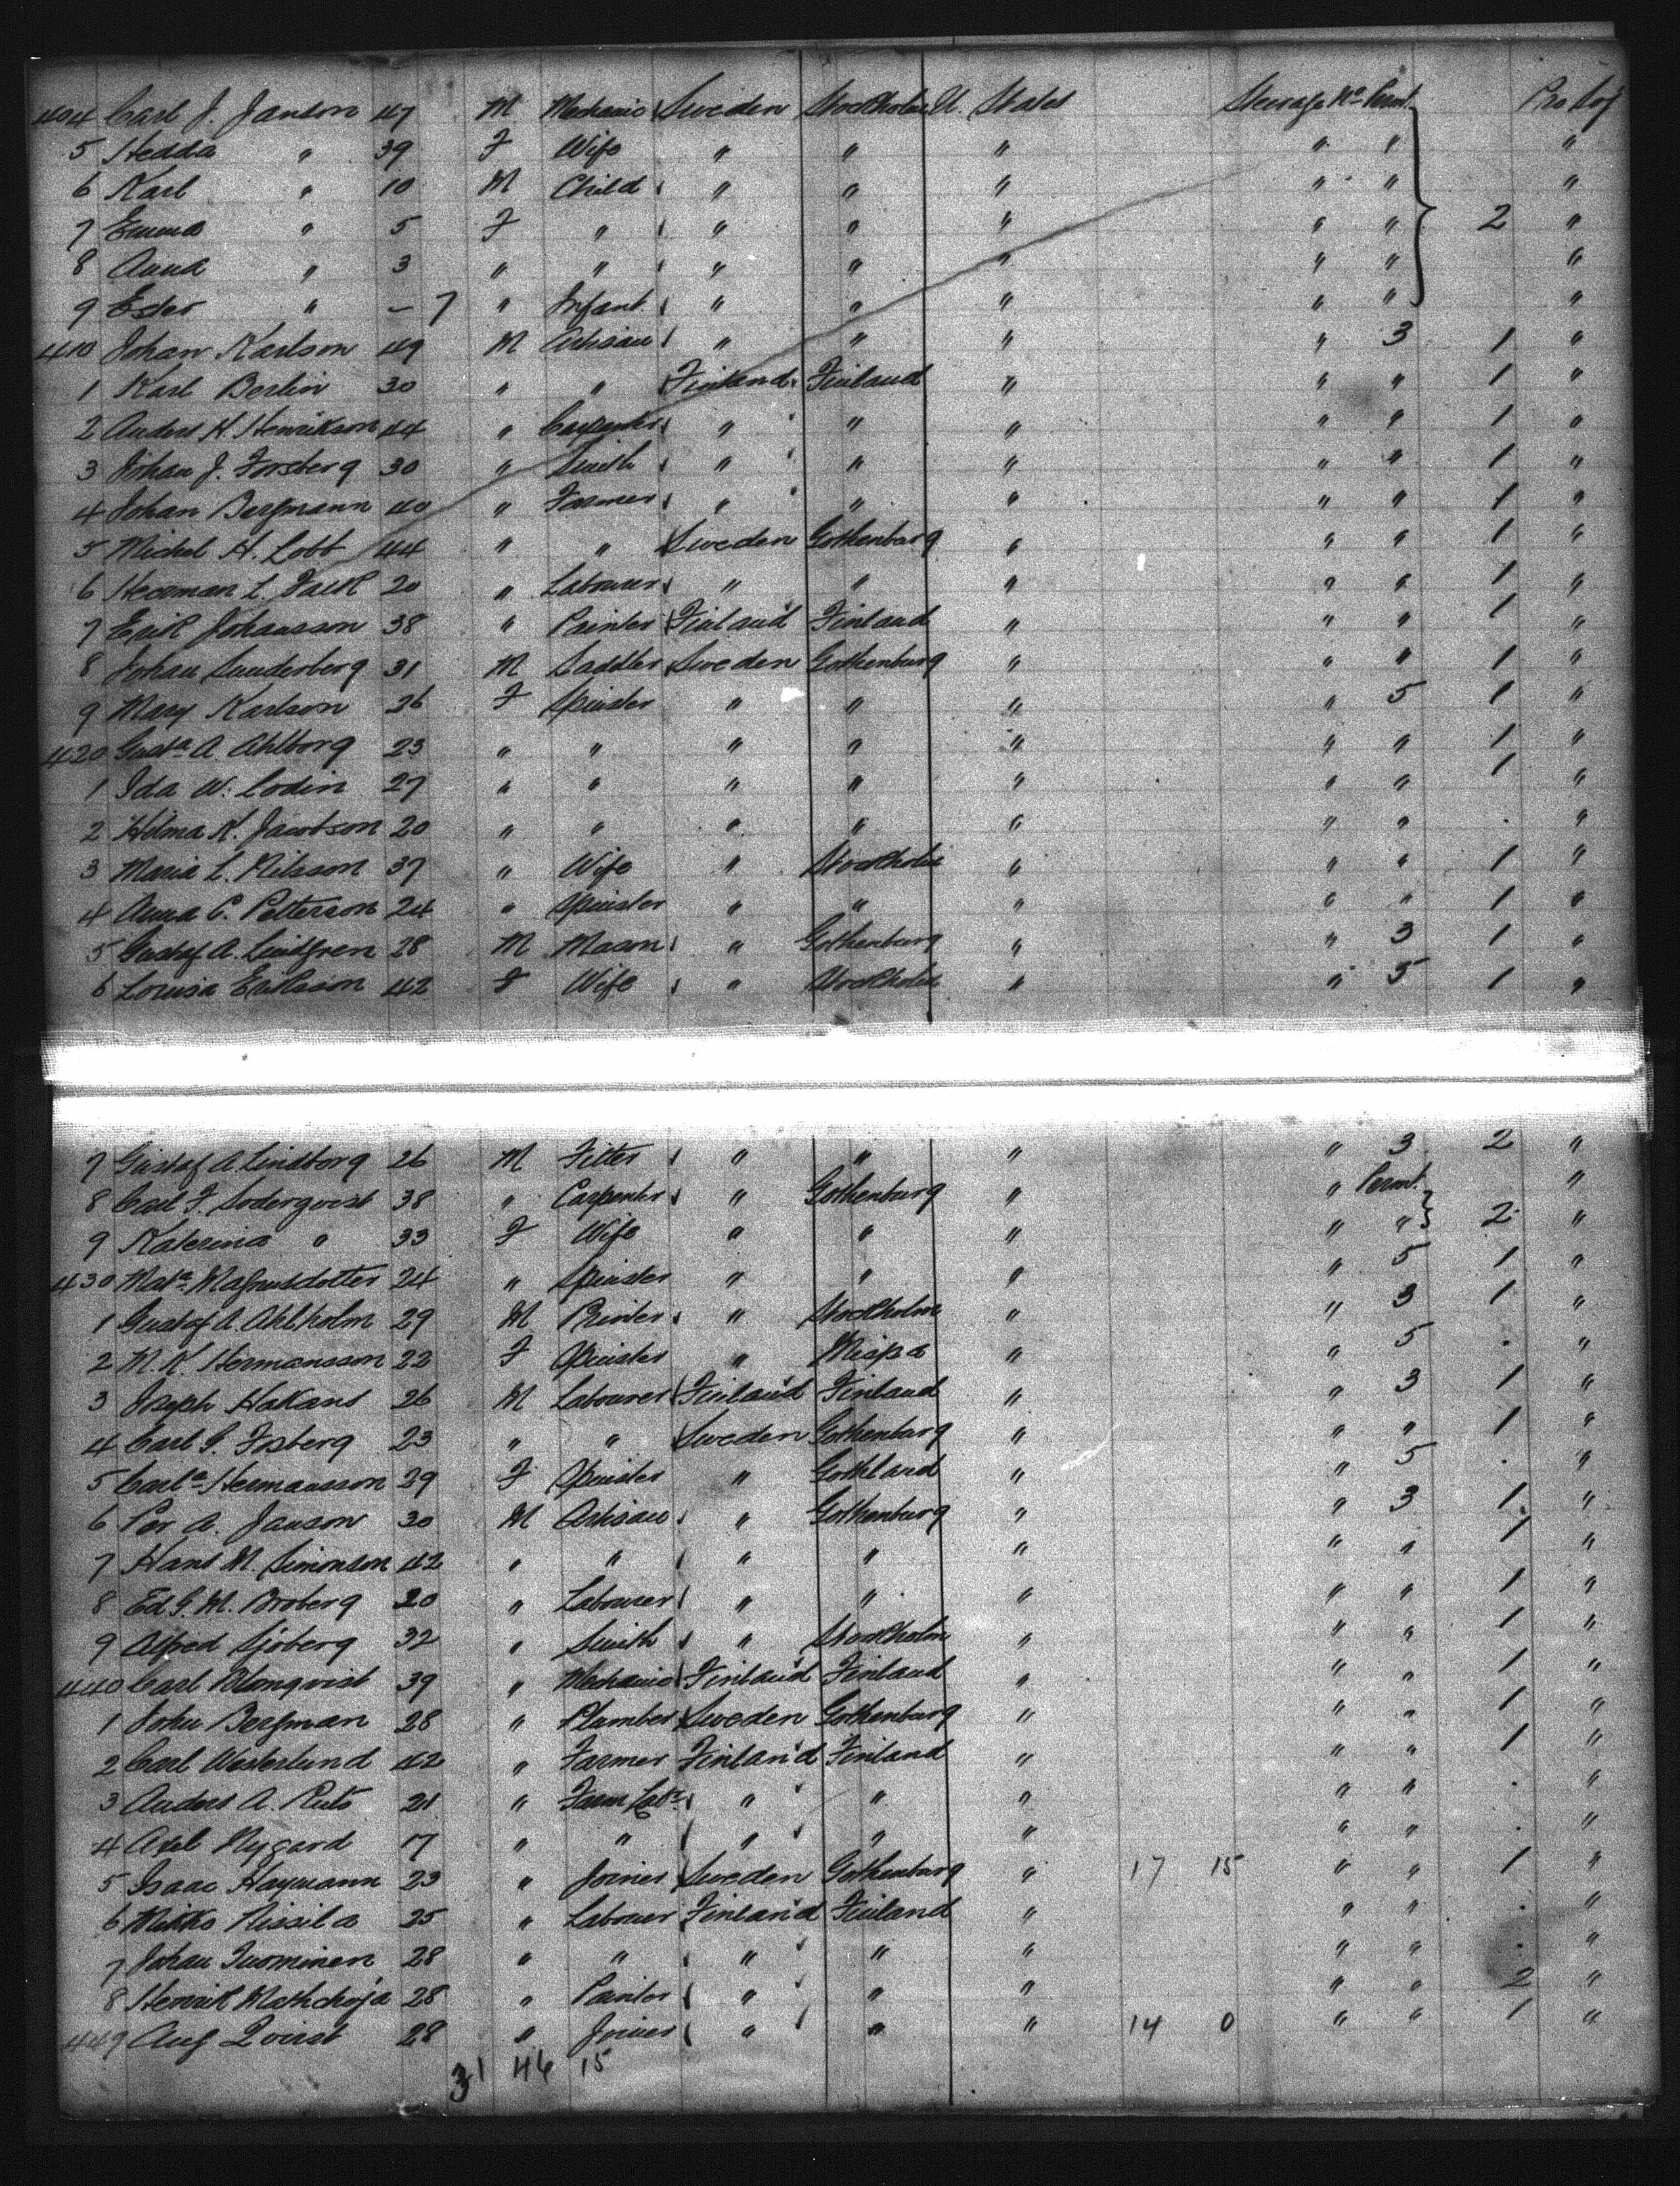 404 Carl J. Janson 47 M Mechanic Sweden Stockholm U. States Steerage No Permt. Pro Soj
5 Hedda " 39 F Wife " " " " " "
6 Karl " 10 M Child " " " " " "
7 Emma " 5 F " " " " " " 2 "
8 Anna " 3 " " " " " " " "
9 Ester " – 7 " Infant " " " " " "
410 Johan Karlson 49 M Artisan " " " " 3 1 "
1 Karl Berlin 30 " " Finland Finland " " " 1 "
2 Anders H. Henrikson 44 " Carpenter " " " " " 1 "
3 Johan J. Forsberg 30 " Smith " " " " " 1 "
4 Johan Bergmann 40 " Farmer " " " " " 1 "
5 Michel H. Lobb 44 " " Sweden Gothenburg " " " 1 "
6 Herman L. Falk 20 " Labourer " " " " " 1 "
7 Erik Johansson 38 " Painter Finland Finland " " " 1 "
8 Johan Sunderberg 31 M Saddler Sweden Gothenburg " " " 1 "
9 Mary Karlson 26 F Spinster " " " " 5 1 "
420 Gusta A. Ahlborg 23 " " " " " " " 1 "
1 Ida W. Lodin 27 " " " " " " " 1 "
2 Hilma K. Jacobson 20 " " " " " " " . "
3 Maria L. Nilsson 37 " Wife " Stockholm " " " 1 "
4 Anna C. Petterson 24 " Spinster " " " " " 1 "
5 Gustaf A. Lindgren 28 M Mason " Gothenburg " " 3 1 "
6 Louisa Eriksson 42 F Wife " Stockholm " " 5 1 "
7 Gustaf A Lindborg 26 M Fitter " " " " 3 2 "
8 Carl F. Soderqvist 38 " Carpenter " Gothenburg " " Permt. "
9 Katerina " 33 F Wife " " " " " 2 "
430 Mata Magnusdotter 24 " Spinster " " " " 5 1 "
1 Gustaf A. Ahlholm 29 M Printer " Stockholm " " 3 1 "
2 M. K. Hermansson 22 F Spinster " " " 5 . "
3 Joseph Hakans 26 M Labourer Finland Finland " " 3 1 "
4 Carl S. Fosberg 23 " " Sweden Gothenburg " " " 1 "
5 Carla Hermansson 29 F Spinster " Gothland " " 5 . "
6 Per A. Janson 30 M Artisan " Gothenburg " " 3 1 "
7 Hans M. Simonson 42 " " " " " " " 1 "
8 Ed G. M. Broberg 20 " Labourer " " " " " 1 "
9 Alfred Sjoberg 32 " Smith " Stockholm " " " 1 "
440 Carl Blomqvist 39 " Mechanic Finland Finland " " " 1 "
1 John Bergman 28 " Plumber Sweden Gothenburg " " " 1 "
2 Carl Westerlund 42 " Farmer Finland Finland " " " 1 "
3 Anders A. 21 " Farm Labr " " " " " . "
4 Axel Nygard 17 " " " " " " " . "
5 Isaac Haymann 23 " Joiner Sweden Gothenburg " 17 15 " " 1 "
6 Mikko Nissila 25 " Labourer Finland Finland " " " "
7 Johan Tuominen 28 " " " " " " " . "
8 Henrik 28 " Painter " " " " " 2 "
449 Aug Qvist 28 " Joiner " " " 14 0 " " 1 "
31 46 15